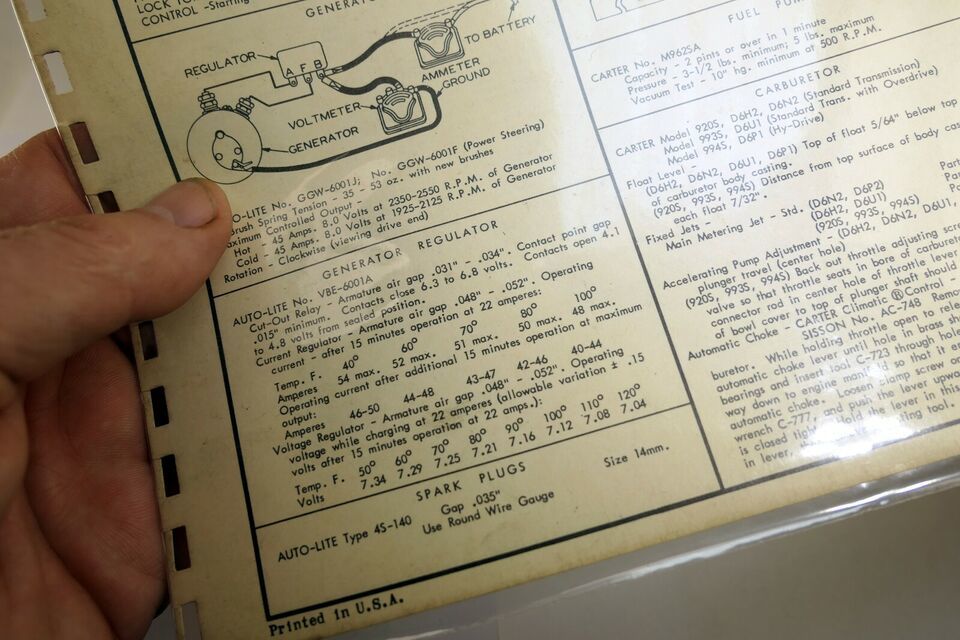 LOCK TO
CONTROL -Starting
GENERATO
REGULATOR
A F B
TO BATTERY
AMMETER
GROUND
VOLTMETER
GENERATOR
O-LITE No. GGW-6001J; No. GGW-6001F (Power Steering)
Brush Spring Tension - 35 - 53 oz. with new brushes
aximum Controlled Output -
Hot - 45 Amps. 8.0 Volts at 2350-2550 R.P.M. of Generator
Cold - 45 Amps. 8.0 Volts at 1925-2125 R.P.M. of Generator
Rotation - Clockwise (viewing drive end)
GENERATOR REGULATOR
AUTO-LITE No. VBE-6001A
Cut-Out Relay - Armature air gap .031" - .034". Contact point gap
.015" minimum. Contacts close 6.3 to 6.8 volts. Contacts open 4.1
to 4.8 volts from sealed position.
Current Regulator - Armature air gap .048" - .052". Operating
current - after 15 minutes operation at 22 amperes:
Temp. F. 40° 60° 70° 80° 100°
Amperes 54 max. 52 max. 51 max. 50 max. 48 max.
Operating current after additional 15 minutes operation at maximum
output:
Amperes 46-50 44-48 43-47 42-46 40-44
Voltage Regulator - Armature air gap .048" - .052". Operating
voltage while charging at 22 amperes (allowable variation ± .15
volts after 15 minutes operation at 22 amps.):
Temp. F. 50° 60° 70° 80° 90° 100° 110° 120°
Volts 7.34 7.29 7.25 7.21 7.16 7.12 7.08 7.04
SPARK PLUGS
AUTO-LITE Type 4S-140 Gap .035" Size 14mm.
Use Round Wire Gauge
Printed in U.S.A.
FUEL PUM
CARTER No. M962SA
Capacity - 2 pints or over in 1 minute
Pressure - 3-1/2 lbs. minimum; 5 lbs. maximum
Vacuum Test - 10" hg. minimum at 500 R.P.M.
CARBURETOR
CARTER Model 920S, D6H2, D6N2 (Standard Transmission)
Model 993S, D6U1 (Standard Trans. with Overdrive)
Model 994S, D6P1 (Hy-Drive)
Float Level (D6H2, D6N2, D6U1, D6P1) Top of float 5/64" below top
of carburetor body casting.
(920S, 993S, 994S) Distance from top surface of body cas
each float 7/32".
Fixed Jets -
Main Metering Jet - Std. (D6N2, D6P2) Part
(D6H2, D6U1) Par
(920S, 993S, 994S)
Accelerating Pump Adjustment - (D6H2, D6N2, D6U1,
plunger travel (center hole)
(920S, 993S, 994S) Back out throttle adjusting scr
valve so that throttle seats in bore of carburetor
connector rod in center hole of throttle lever
of bowl cover to top of plunger shaft should
Automatic Choke - CARTER Climatic ® Control
SISSON No. AC-748 Remo
buretor. While holding throttle open to rele
automatic choke lever until hole in brass sh
bearings and insert tool C-723 through ho
way down to engine manifold so that it en
automatic choke. Loosen clamp screw
wrench C-777, and push the lever upwa
is closed tight. Hold the lever in this
in lever, ing tool.